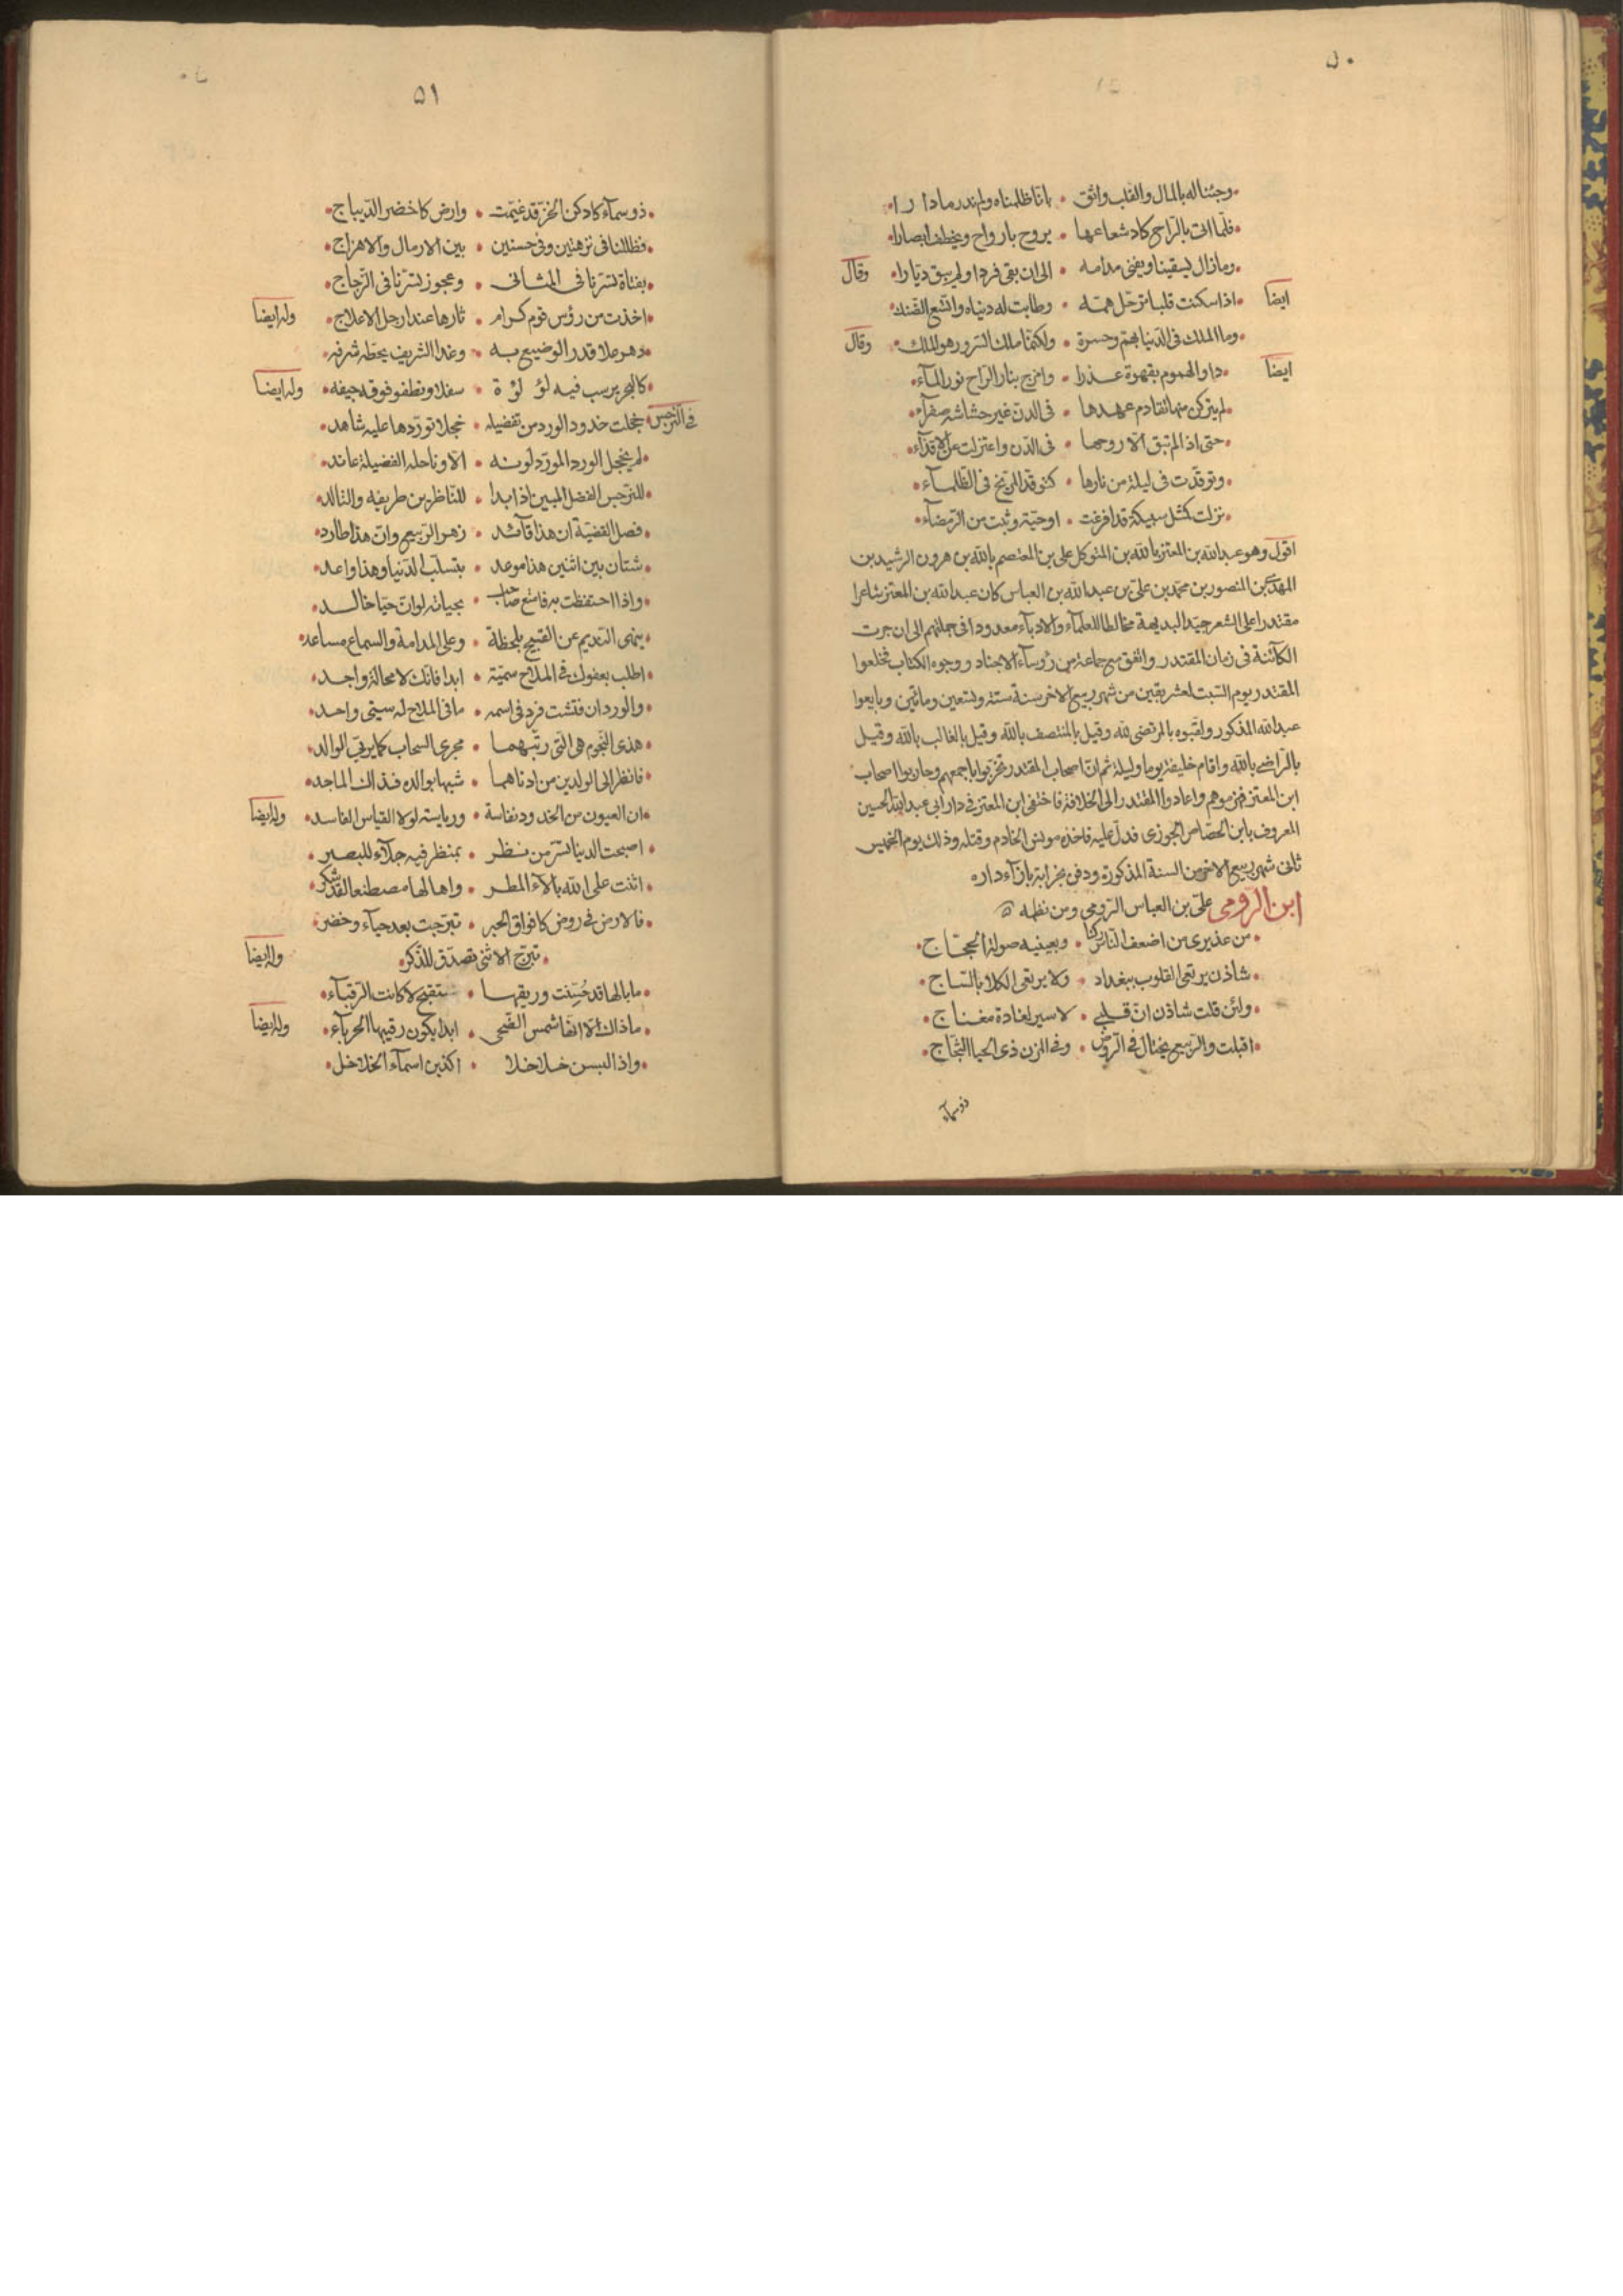 ٥٠
وجئنا له بالمال والقلب واثق • بانا ظلمناه ولم ندر ما دارا
فلما اتى بالراح كاد شعاعها • يروح بارواح ويخطف ابصارا
وما زال يسقينا ويفنى مدامه • الى ان بقى فردا ولم يبق ديارا • وقال
ايضا • اذا سكنت قلبا ترحل همه • وطابت له دنياه واتسع الضنك
وما الملك فى الدنيا بهم وحسرة • ولكنما ملك السرور هو الملك • وقال
ايضا • داو الهموم بقهوة عذرا • وامزج بنار الراح نور المآء
لم يترك منها تقادم عهدها • فى الدن غير حشاشه صفرآء
حتى اذا لم تبق الا روحها • فى الدن واعتزلت عن الاقذآء
وتوقدت فى ليلة من نارها • كتوقد المريخ فى الظلمآء
نزلت كمثل سبيكة قد افرغت • او حية وثبت من الرمضآء
اقول وهو عبد الله بن المعتز بالله بن المتوكل على بن المعتصم بالله بن هرون الرشيد بن
المهدى بن المنصور بن محمد بن على بن عبد الله بن العباس كان عبد الله بن المعتز شاعرا
مقتدرا على الشعر جيد البديهة مخالطا للعلمآء والادبآء معدودا فى جملتهم الى ان جرت
الكآئنة فى زمان المقتدر واتفق مع جماعة من رؤسآء الاجناد ووجوه الكتاب فخلعوا
المقتدر يوم السبت لعشر بقين من شهر ربيع الاخر سنة ستة وتسعين ومائتين وبايعوا
عبد الله المذكور ولقبوه بالمرتضى لله وقيل بالمنتصف بالله وقيل بالغالب بالله وقيل
بالراضى بالله واقام خليفة يوما وليلة ثم ان اصحاب المقتدر تحزبوا باجمعهم وحاربوا اصحاب
ابن المعتز فهزموهم واعادوا المقتدر الى الخلافة فاختفى ابن المعتز فى دار ابى عبد الله الحسين
المعروف بابن الحصاص الجوزى فدل عليه فاخذه مونس الخادم وقتله وذلك يوم الخميس
ثانى شهر ربيع الاخر من السنة المذكورة ودفن بخرابة بازآء داره
ابن الرومى على بن العباس الرومى ومن نظمه
من عذيرى من اضعف الناس ركنا • وبعينيه صولة الحجاج
شادن يرتعى القلوب ببغداد • ولا يرتعى الكلا بالنباج
ولئن قلت شادن ان قلبى • لاسير لغادة مغناج
اقبلت والربيع يختال فى الروض • وفى المزن ذى الحيا الثجاج
ذو سمآء
٥١
ذو سمآء كادكن الخز قد غيمت • وارض كاخضر الديباج
فظللنا فى نزهتين وفى حسنين • بين الارمال والاهزاج
بفتاة تسرنا فى المثانى • وعجوز تسرنا فى الزجاج
اخذت من رؤس قوم كرام • ثارها عند ارجل الاعلاج • وله ايضا
دهر علا قدر الوضيع به • وغدا الشريف يحطه شرفه
كالبحر يرسب فيه لؤلؤة • سفلا وتطفو فوقه جيفه • وله ايضا
فى النرجس • خجلت خدود الورد من تفضيله • خجلا توردها عليه شاهد
لم يخجل الورد المورد لونه • الا وناحله الفضيلة عاند
للنرجس الفضل المبين اذا بدا • للناظرين طريفه والتالد
فصل القضية ان هذا قآئد • زهر الربيع وان هذا طارد
شتان بين اثنين هذا موعد • بتسلب الدنيا وهذا واعد
واذا احتفظت به فامتع صاحب • بحياته لو ان حيا خالد
ينهى النديم عن القبيح بلحظة • وعلى المدامة والسماع مساعد
اطلب بعفوك فى الملاح سميه • ابدا فانك لا محالة واجد
والورد ان فتشت فرد فى اسمه • ما فى الملاح له سمى واحد
هذى النجوم هى التى ربتهما • مجرى السحاب كما يربى الوالد
فانظر الى الولدين من ادناهما • شبها بوالده فذاك الماجد
ان العيون من الخدود نفاسة • ورياسته لولا القياس الفاسد • وله ايضا
اصبحت الدنيا تسر من نظر • بمنظر فيه جلآء للبصر
اثنت على الله بالآء المطر • واها لها مصطنعا لقد شكر
فالارض فى روض كافواق الحبر • تبرجت بعد حيآء وخفر
تبرج الانثى تصدق للذكر • وله ايضا
ما بالها قد حسنت ورقيبها • ستقبح لا كانت الرقبآء
ما ذاك الا انها شمس الضحى • ابدا يكون رقيبها الحربآء • وله ايضا
واذا لبسن خلاخلا • اكذبن اسمآء الخلاخل